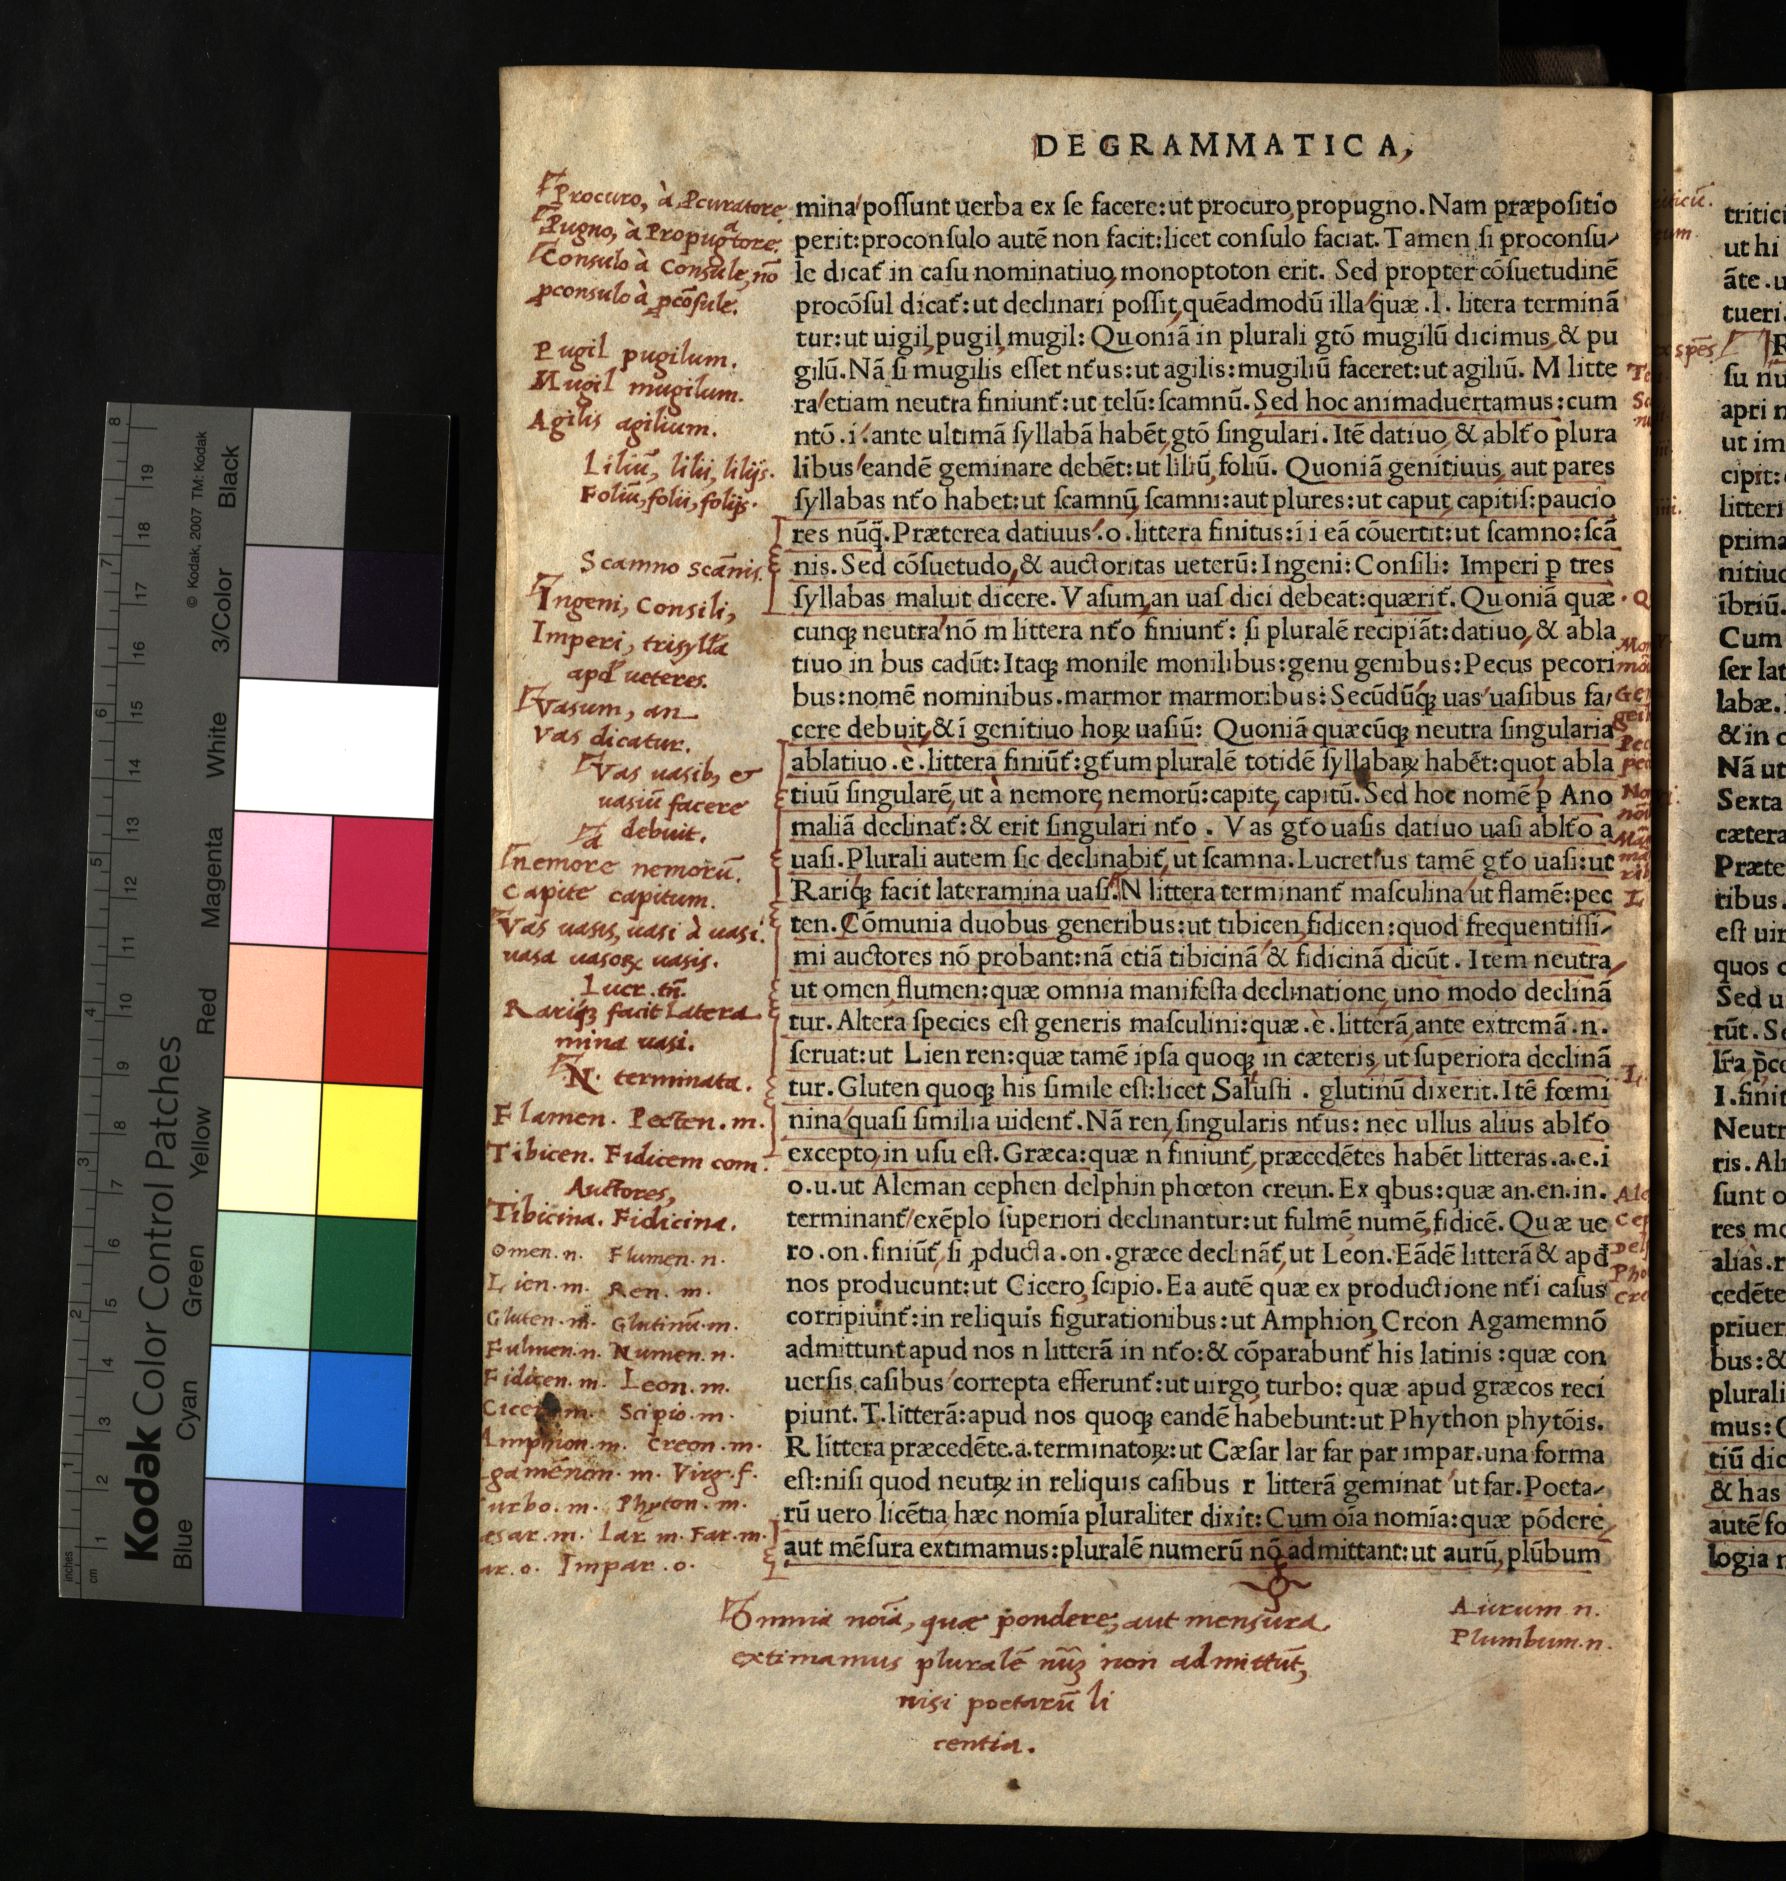 DE GRAMMATICA,
mina possunt uerba ex se facere: ut procuro, propugno. Nam præpositio
perit: proconsulo autē non facit: licet consulo faciat. Tamen si proconsu-
le dicat̃ in casu nominatiuo, monoptoton erit. Sed propter cōsuetudinē
procōsul dicat̃: ut declinari possit, quēadmodū illa quæ .l. litera terminā
tur: ut uigil, pugil, mugil: Quoniā in plurali gtō mugilū dicimus, & pu
gilū. Nā si mugilis esset nt̃us: ut agilis: mugiliū faceret: ut agiliū. M litte
ra etiam neutra finiunt̃: ut telū: scamnū. Sed hoc animaduertamus: cum
ntō .i. ante ultimā syllabā habēt, gtō singulari. Itē datiuo, & ablt̃o plura
libus eandē geminare debēt: ut liliū, foliū. Quoniā genitiuus, aut pares
syllabas nt̃o habet: ut scamnū, scamni: aut plures: ut caput, capitis: paucio
res nūq̄. Præterea datiuus .o. littera finitus: i i eā cōuertit: ut scamno: scā
nis. Sed cōsuetudo, & auctoritas ueterū: Ingeni: Consili: Imperi ꝑ tres
syllabas maluit dicere. Vasum, an uas dici debeat: quærit̃. Quoniā quæ
cunqꝫ neutra nō m littera nt̃o finiunt̃: si pluralē recipiāt: datiuo, & abla
tiuo in bus cadūt: Itaqꝫ monile monilibus: genu genibus: Pecus pecori
bus: nomē nominibus. marmor marmoribus: Secūdūqꝫ uas uasibus fa-
cere debuit, & ī genitiuo hoꝝ uasiū: Quoniā quæcūqꝫ neutra singularia
ablatiuo .e. littera finiūt̃: gt̃um pluralē totidē syllabaꝝ habēt: quot abla
tiuū singularē, ut à nemore, nemorū: capite, capitū. Sed hoc nomē ꝑ Ano
maliā declinat̃: & erit singulari nt̃o. Vas gt̃o uasis datiuo uasi ablt̃o a
uasi. Plurali autem sic declinabit̃, ut scamna. Lucretius tamē gt̃o uasi: ut
Rariqꝫ facit lateramina uasi. N littera terminant̃ masculina ut flamē: pec
ten. Cōmunia duobus generibus: ut tibicen, fidicen: quod frequentissi-
mi auctores nō probant: nā etiā tibicinā & fidicinā dicūt. Item neutra
ut omen, flumen: quæ omnia manifesta declinatione, uno modo declinā
tur. Altera species est generis masculini: quæ .e. litterā ante extremā .n.
seruat: ut Lien ren: quæ tamē ipsa quoqꝫ in cæteris, ut superiora declinā
tur. Gluten quoqꝫ his simile est: licet Salusti. glutinū dixerit. Itē fœmi
nina quasi similia uident̃. Nā ren, singularis nt̃us: nec ullus alius ablt̃o
excepto, in usu est. Græca: quæ n finiunt̃, præcedētes habēt litteras .a.e.i
o.u. ut Alcman cephen delphin phœton creun. Ex qbus: quæ an.en.in.
terminant̃ exēplo superiori declinantur: ut fulmē, numē, fidicē. Quæ ue
ro .on. finiūt̃, si ꝓducta .on. græce declināt̃, ut Leon. Eādē litterā & apđ
nos producunt: ut Cicero, scipio. Ea autē quæ ex productione nt̃i casus
corripiunt̃: in reliquis figurationibus: ut Amphion, Creon Agamemnō
admittunt apud nos n litterā in nt̃o: & cōparabunt̃ his latinis: quæ con
uersis casibus correpta efferunt̃: ut uirgo, turbo: quæ apud græcos reci
piunt. T. litterā: apud nos quoqꝫ eandē habebunt: ut Phython phytōis.
R littera præcedēte .a. terminatoꝝ: ut Cæsar lar far par impar. una forma
est: nisi quod neutꝝ in reliquis casibus r litterā geminat ut far. Poeta-
rū uero licētia, hæc nomīa pluraliter dixit: Cum oīa nomīa: quæ pōdere
aut mēsura extimamus: pluralē numerū nō admittant: ut aurū, plūbum
Procuro, à Pcuratore.
Pugno, à Propugtore.
Consulo à Consule, nō
ꝓconsulo à ꝓcōsule.
Pugil pugilum.
Mugil mugilum.
Agilis agilium.
Liliū, lilii, lilijs.
Foliū, folii, folijs.
Scamno scānis.
Ingeni, Consili,
Imperi, trisylła
apđ ueteres.
Vasum, an
Vas dicatur.
Vas uasibꝫ et
uasiū facere
debuit.
à
nemore nemorū.
Capite capitum.
Vas uasis, uasi à uasi.
uasa uasoꝝ uasis.
Lucr. tñ.
Rariqꝫ facit Latera
mina uasi.
N. terminata.
Flamen. Pecten. m.
Tibicen. Fidicem com.
Auctores,
Tibicina. Fidicina.
Omen. n. Flumen. n.
Lien. m. Ren. m.
Gluten. n. Glutinū. m.
Fulmen. n. Numen. n.
Fidicen. m. Leon. m.
Scipio. m.
Amphion. m. Creon. m.
gamēnon. m. Virg. f.
urbo. m. Phyton. m.
æsar. m. Lar m. Far. m.
ar. o. Impar. o.
Omnia noīa, quæ pondere, aut mensura
extimamus pluralē nūꝫ non admittūt,
nisi poetarū li
centia.
Aurum n.
Plumbum. n.
tritici
ut hi
āte. u
tueri.
su nu
apri n
ut im
cipit:
litteri
prima
nitiuo
ībriū.
Cum
ser lat
labæ.
& in c
Nā ut
Sexta
cætera
Præte
tribus.
est uir
quos c
Sed u
rūt. Se
I. finit
Neutr
ris. Ali
sunt o
res mo
alias. r
cedēte
priuer
bus: &
plurali
mus: Q
tiū dic
& has
autē fo
logia n
Kodak Color Control Patches
© Kodak, 2007 TM: Kodak
Blue Cyan Green Yellow Red Magenta White 3/Color Black
inches 1 2 3 4 5 6 7 8
cm 1 2 3 4 5 6 7 8 9 10 11 12 13 14 15 16 17 18 19